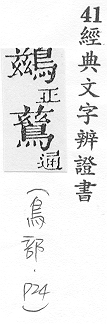 41 經典文字辨證書
鷀正鶿通
(鳥部·P24)